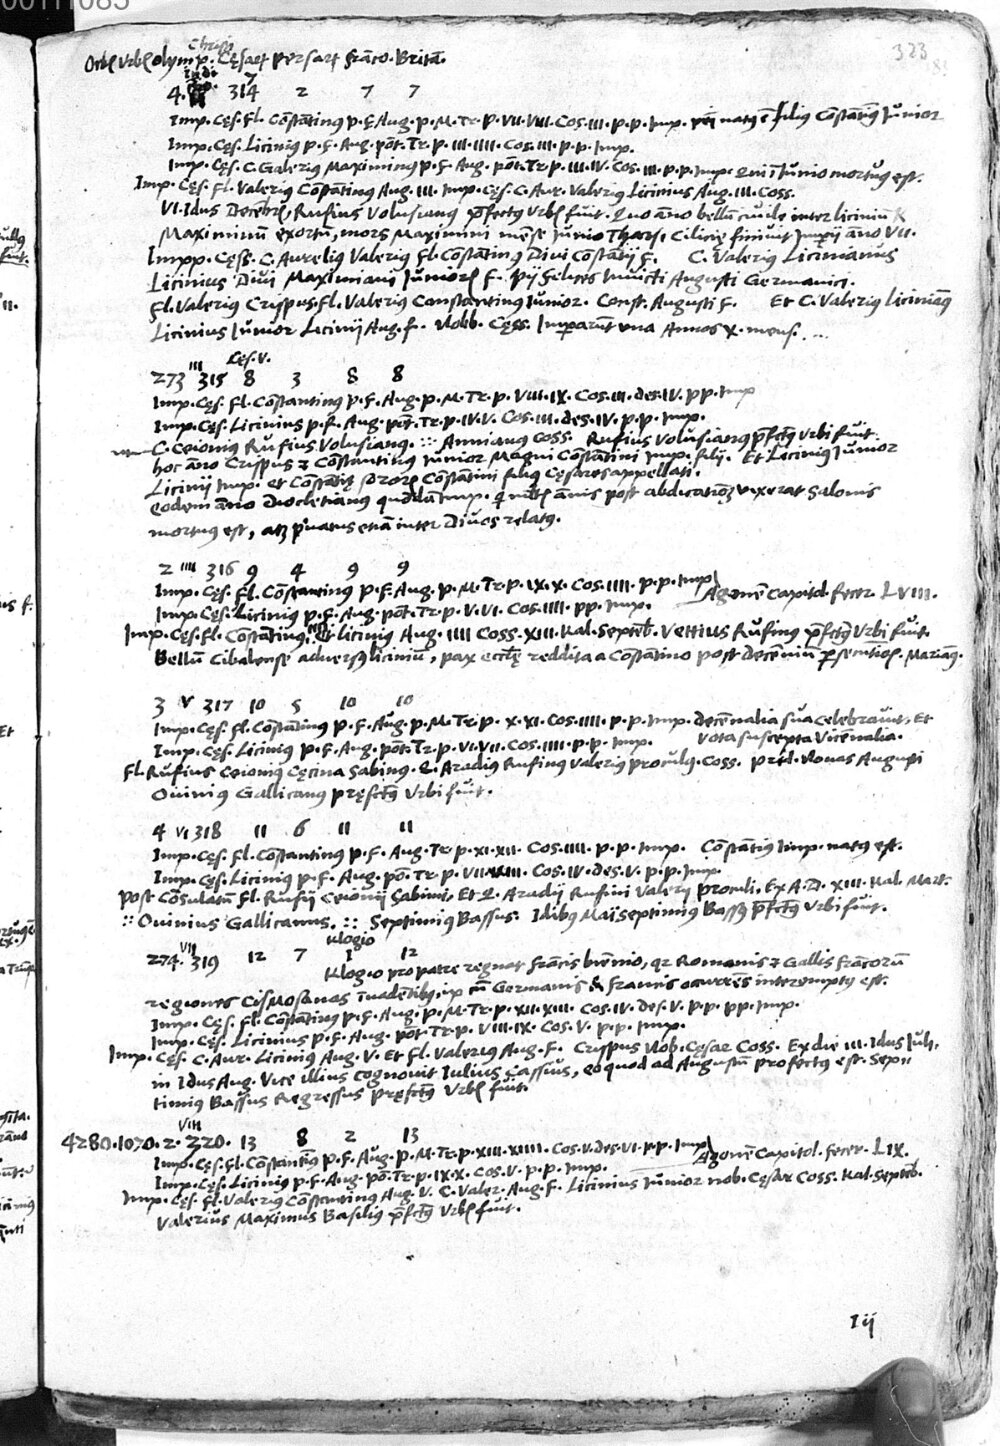 00111085
323
Christi
Orbē Urbē olymp. Cęsarę persarę franco. Britā.
4. 314 2 7 7 7
Imp. Cęs. Fl. Constātinꝰ p. F. Aug. p. M. Tr. p. VII. VIII. Cos. III. p. p. Imp. natꝰ ē filiꝰ Constātinꝰ Iunior
Imp. Cęs. Liciniꝰ p. F. Aug. pōt. Tr. p. III. IIII. Cos. III. p. p. Imp.
Imp. Cęs. C. Galeriꝰ Maximinꝰ p. F. Aug. pōt. Tr p. III. IV. Cos. III. p. p. Imp. Qui Iunio mortuꝰ est.
Imp. Cęs. Fl. Valeriꝰ Constātinꝰ Aug. III. Imp. Cęs. C. Aur. Valeriꝰ Licinius Aug. III. Coss.
VI. Idus Decēbrꝭ, Rufius Volusianꝰ p̄fectꝰ Urbꝭ fuit. Quo āno bellū ciuile inter liciniū &
Maximinū exortū, mors Maximini mēse Iunio Tharsi Cilicię finiuit Imperij āno VII.
Impp. Cęss. C. Aureliꝰ Valeriꝰ Fl. Constātinꝰ Diui Constātij F. C. Valeriꝰ Licinianus
Licinius Diui Maximiani Iuniorꝭ F. Pij felices Inuicti Augusti Germanici.
Fl. Valeriꝰ Crispus. Fl. Valeriꝰ Constantinꝰ Iunior. Const. Augusti F. Et C. Valeriꝰ licinianꝰ
Licinius Iunior Licinij Aug. f. Nobb. Cęss. Imperarūt una Annos X. mens. ...
Cęs. V.
273 III 315 8 3 8 8
Imp. Cęs. Fl. Constantinꝰ p. F. Aug. p. M. Tr. p. VIII. IX. Cos. III. des. IV. pp. Imp
Imp. Cęs. Licinius p. F. Aug. pōt. Tr. p. IV. V. Cos. III. des. IV. p. p. Imp.
C. Ceioniꝰ Rufius Volusianꝰ. :: Annianꝰ Coss. Rufius Volusianꝰ p̄fctꝰ Urbi fuit.
hoc āno Crispus & Constantinꝰ Iunior Magni Constātini Imp. filij. Et Liciniꝰ Iunior
Licinij Imp. et Constātię sororꝭ Constātini filiꝰ Cęsares appellati.
eodem āno Diocletianus quōdā Imp. q̄ ānis post abdicationē vixerat Salonis
mortuꝰ est, atꝗ priuatus etiā inter Diuos relatꝰ.
2 IIII 316 9 4 9 9
Imp. Cęs. Fl. Constantinꝰ p. F. Aug. p. M. Tr. p. IX. X. Cos. IIII. p. p. Imp Agonē Capitol. fecer. LVIII.
Imp. Cęs. Liciniꝰ p. F. Aug. pōt. Tr. p. V. VI. Cos. IIII. pp. Imp.
Imp. Cęs. Fl. Constātinꝰ IIII Et Liciniꝰ Aug. IIII Coss. XIII. Kal. Septēb. Vettius Rufinꝰ p̄fctꝰ Urbi fuit.
Bellū Cibalense aduersꝰ liciniū, pax eccłę reddita a Constātino post decēniū ꝑsecutiōꝭ. Marianꝰ.
3 V 317 10 5 10 10
Imp. Cęs. Fl. Constātinꝰ p. F. Aug. p. M. Tr. p. X. XI. Cos. IIII. p. p. Imp. decēnalia sua celebrauit. Et
Imp. Cęs. Liciniꝰ p. F. Aug. pōt. Tr. p. VI. VII. Cos. IIII. p. p. Imp. vota suscepta Vicēnalia.
Fl. Rufius Ceioniꝰ Cęcina Sabinꝰ. Q. Aradiꝰ Rufinꝰ Valeriꝰ proculꝰ. Coss. Prid. Nonas Augusti
Ouiniꝰ Gallicanꝰ pręfctꝰ Urbi fuit.
4 VI 318 11 6 11 11
Imp. Cęs. Fl. Constantinꝰ p. F. Aug. Tr p. XI. XII. Cos. IIII. p. p. Imp. Constātiꝰ Imp. natꝰ est.
Imp. Cęs. Liciniꝰ p. F. Aug. pōt. Tr p. VII. VIII. Cos. IV. des. V. p. p. Imp.
Post Consulatū Fl. Rufij Ceionij Sabini, Et Q. Aradij Rufini Valerij proculi. Ex A. D. XIII. Kal. Mart.
:: Ouinius Gallicanus. :: Septimiꝰ Bassus. Idibꝰ Mai Septimiꝰ Bassꝰ p̄fctꝰ Urbi fuit.
Klogio
274. VII 319 12 7 1 12
Klogio pro patre regnat francis biēnio, qz Romanis & Gallis francorū
regiones Cismosanas īuadētibꝰ, ip̄e cū Germanis & francis occurrēs interemptꝰ est.
Imp. Cęs. Fl. Constātinꝰ p. F. Aug. p. M. Tr. p. XII. XIII. Cos. IV. des. V. p. p. pp. Imp.
Imp. Cęs. Licinius p. F. Aug. pōt. Tr. p. VIII. IX. Cos. V. p. p. Imp.
Imp. Cęs. C. Aur. Liciniꝰ Aug. V. Et Fl. Valeriꝰ Aug. F. Crispus Nob. Cęsar Coss. Ex die III. Idus Iuli.
in Idus Aug. Vice illius cognouit Iulius Cassius, eo quod ad Augustū profectꝰ est. Sep-
timiꝰ Bassus Regressus pręfctꝰ Urbꝭ fuit.
4280. 1070. 2. VIII 320. 13 8 2 13
Imp. Cęs. Fl. Constantinꝰ p. F. Aug. p. M. Tr. p. XIII. XIIII. Cos. V. des. VI. p. p. Imp Agonē Capitol. fecer. LIX.
Imp. Cęs. Liciniꝰ p. F. Aug. pōt. Tr. p. IX. X. Cos. V. p. p. Imp.
Imp. Cęs. Fl. Valeriꝰ Constantinꝰ Aug. V. C. Valer. Aug. F. Licinius Iunior nob. Cęsar Coss. Kal. Septēb.
Valerius Maximus Basiliꝰ p̄fctꝰ Urbꝭ fuit.
I ij